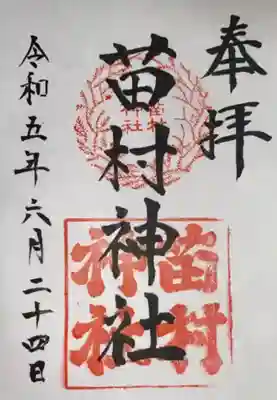 奉拝
苗村神社
苗村
神社
令和五年六月二十四日